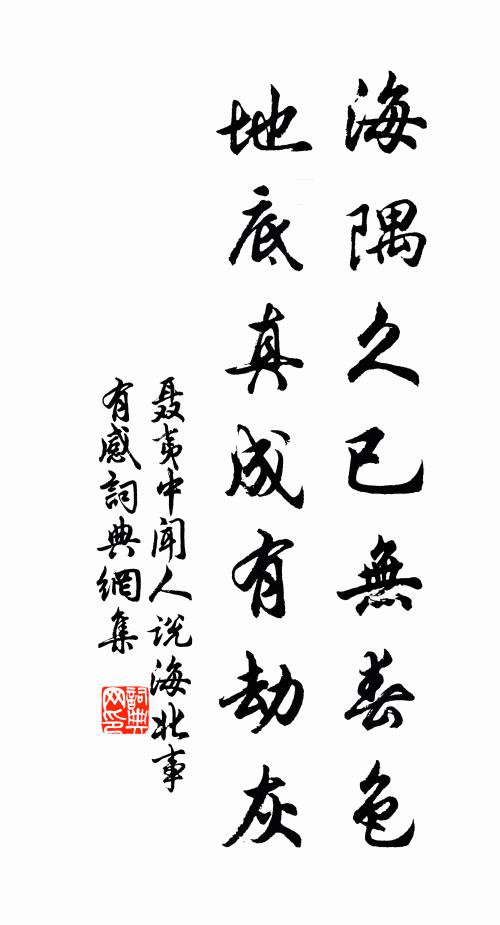 海隅久已無春色
地底真成有劫灰
聶夷中聞人说海北事
有感詞典網集
詞典
网印